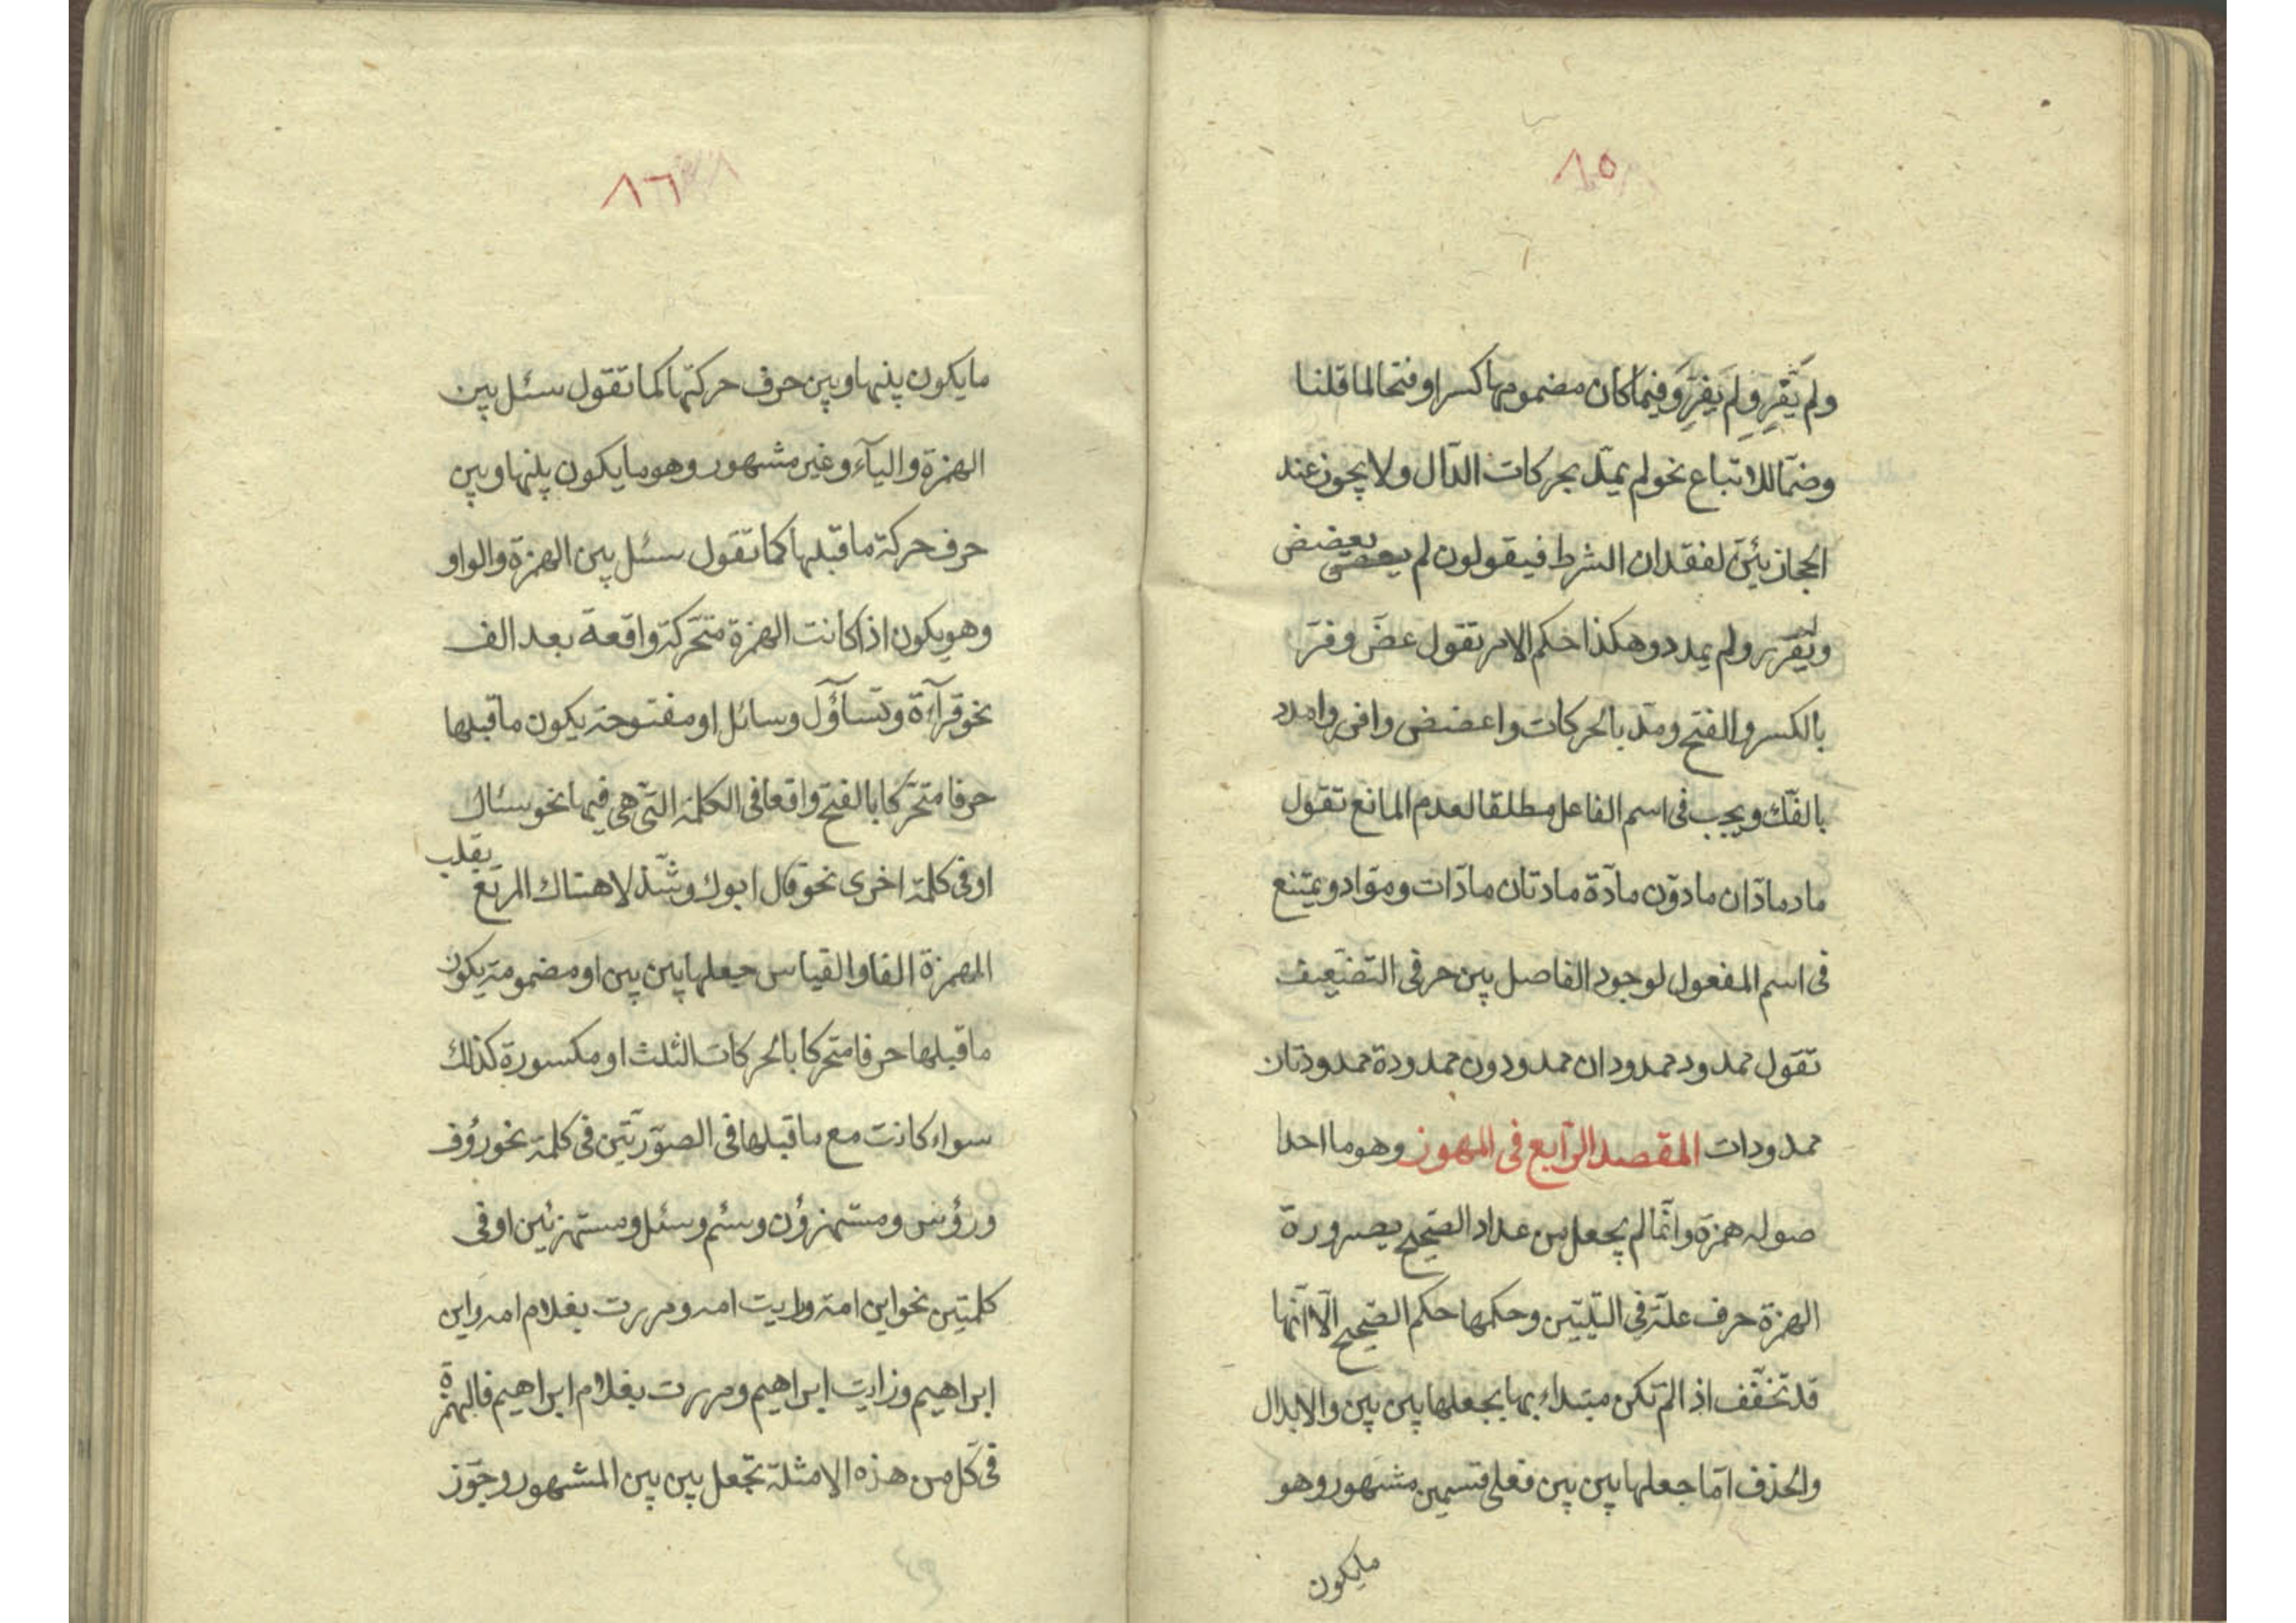 ٨٥
ولم يَفْرِرْ ولم يَفِرَّ وفيما كان مضمومها كسرا وفتحا لما قلنا
وضمّا للاتباع نحو لم يمدّ بحركات الدّال ولا يجوز عند
الحجازيّين لفقدان الشرط فيقولون لم يعضض
ولم يفرر ولم يمدد وهكذا حكم الامر تقول عضّ وفرّ
بالكسر والفتح ومدّ بالحركات واعضض وافرر وامدد
بالفكّ ويجب فى اسم الفاعل مطلقا لعدم المانع تقول
مادّ مادّان مادّون مادّة مادّتان مادّات وموادّ ويمتنع
فى اسم المفعول لوجود الفاصل بين حرفى التضعيف
تقول ممدود ممدودان ممدودون ممدودة ممدودتان
ممدودات المقصد الرّابع فى المهموز وهو ما احدا
صوله همزة وانّما لم يجعل من عداد الصّحيح بصيرورة
الهمزة حرف علّة فى التّليين وحكمها حكم الصّحيح الّا انّها
قد تخفّف اذا لم تكن مبتداء بها بجعلها بين بين والابدال
والحذف امّا جعلها بين بين فعلى قسمين مشهور وهو
مايكون
٨٦
ما يكون بينها وبين حرف حركتها كما تقول سئل بين
الهمزة والياء وغير مشهور وهو ما يكون بينها وبين
حرف حركة ما قبلها كما تقول سئل بين الهمزة والواو
وهو يكون اذا كانت الهمزة متحّركة واقعة بعد الف
نحو قرآءة وتسآؤل وسائل او مفتوحة يكون ما قبلها
حرفا متحّركا بالفتح واقعا فى الكلمة التّى هى فيها نحو سئال
او فى كلمة اخرى نحو قال ابوك وشّذ لا هناك المرتع يقلب
الهمزة الفا والقياس جعلها بين بين او مضمومة يكون
ما قبلها حرفا متحركا بالحركات الثلث او مكسورة كذلك
سواء كانت مع ما قبلها فى الصّورتين فى كلمة نحو رؤف
ورؤس ومستهزؤن وسئم وسئل ومستهزئين او فى
كلمتين نحو اين امة ورايت امه ومررت بغلام امه واين
ابراهيم ورايت ابراهيم ومررت بغلام ابراهيم فالهمزة
فى كّل من هذه الامثلة تجعل بين بين المشهور وجّوز